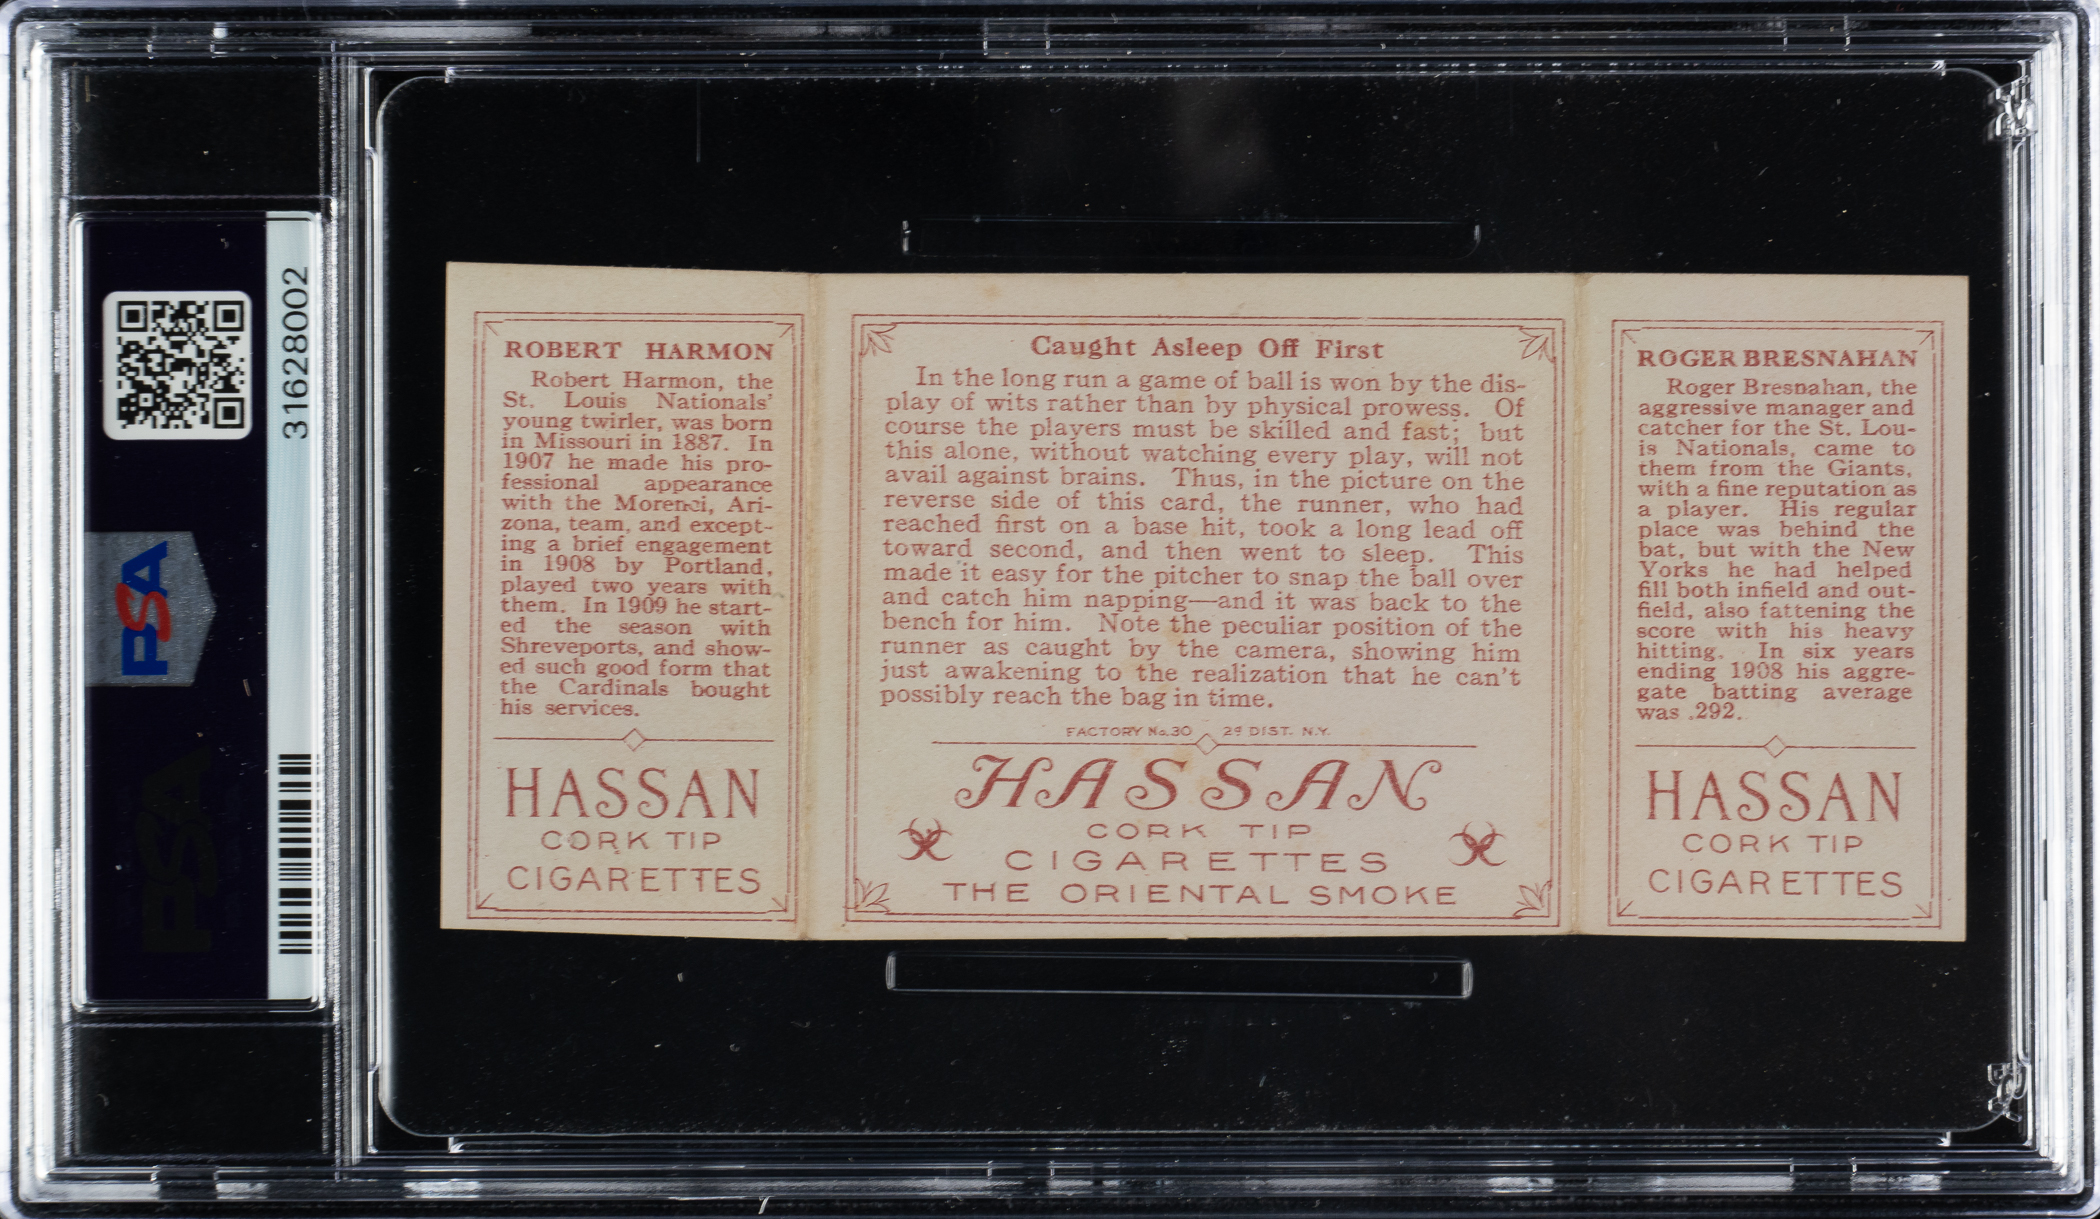 31628002
PSA
PSA
ROBERT HARMON
Robert Harmon, the
St. Louis Nationals'
young twirler, was born
in Missouri in 1887. In
1907 he made his pro-
fessional appearance
with the Morenci, Ari-
zona, team, and except-
ing a brief engagement
in 1908 by Portland,
played two years with
them. In 1909 he start-
ed the season with
Shreveports, and show-
ed such good form that
the Cardinals bought
his services.
HASSAN
CORK TIP
CIGARETTES
Caught Asleep Off First
In the long run a game of ball is won by the dis-
play of wits rather than by physical prowess. Of
course the players must be skilled and fast; but
this alone, without watching every play, will not
avail against brains. Thus, in the picture on the
reverse side of this card, the runner, who had
reached first on a base hit, took a long lead off
toward second, and then went to sleep. This
made it easy for the pitcher to snap the ball over
and catch him napping—and it was back to the
bench for him. Note the peculiar position of the
runner as caught by the camera, showing him
just awakening to the realization that he can't
possibly reach the bag in time.
FACTORY No. 30 2d DIST. N.Y.
HASSAN
CORK TIP
CIGARETTES
THE ORIENTAL SMOKE
ROGER BRESNAHAN
Roger Bresnahan, the
aggressive manager and
catcher for the St. Lou-
is Nationals, came to
them from the Giants,
with a fine reputation as
a player. His regular
place was behind the
bat, but with the New
Yorks he had helped
fill both infield and out-
field, also fattening the
score with his heavy
hitting. In six years
ending 1908 his aggre-
gate batting average
was .292.
HASSAN
CORK TIP
CIGARETTES